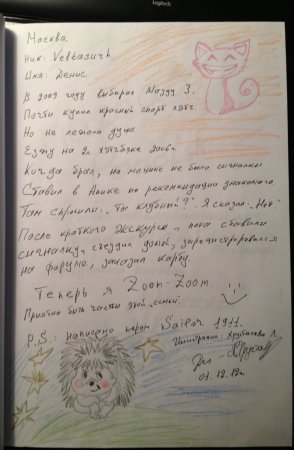 Logitech
Москва.
Ник: Veltasurh
Имя: Денис
В 2009 году выбирал Мазду 3.
Почти купил красный спорт хэтч
Но не лежала душа
Езжу на 2л. хэтчбэке
Когда брал, на машине не было сигналки
Ставил в Анике по рекомендации знакомого.
Там спросили: "Ты клубный?" Я сказал "Нет"
После краткого экскурса, пока ставили
сигналку, съездил домой, зарегистрировался
на форуме, заказал карту.
Теперь я Zoom-Zoom.
Приятно быть частью этой семьи.
P.S.: написано пером Sailor 1911.
Иллюстрации: Л.
01.12.12г.